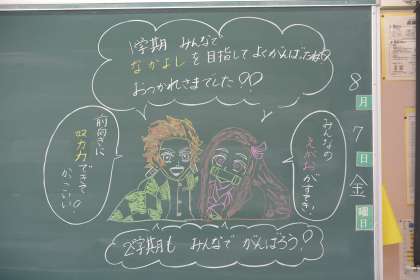 1学期 みんなで
なかよしを目指してよくがんばったね!
おつかれさまでした!!
みんなの
えがおがすてき!
前向きに
努力できて
かっこいい!
2学期も みんなで がんばろう!
8
月
7
日
金
曜日